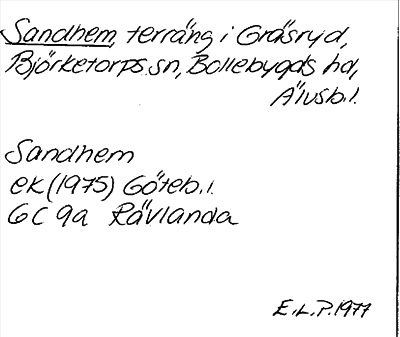 Sandhem, terräng i Gräsryd,
Björketorps sn, Bollebygds hd,
Älvsb.l.
Sandhem
ek (1975) Göteb.l.
6C 9a Rävlanda
E.L.P. 1977